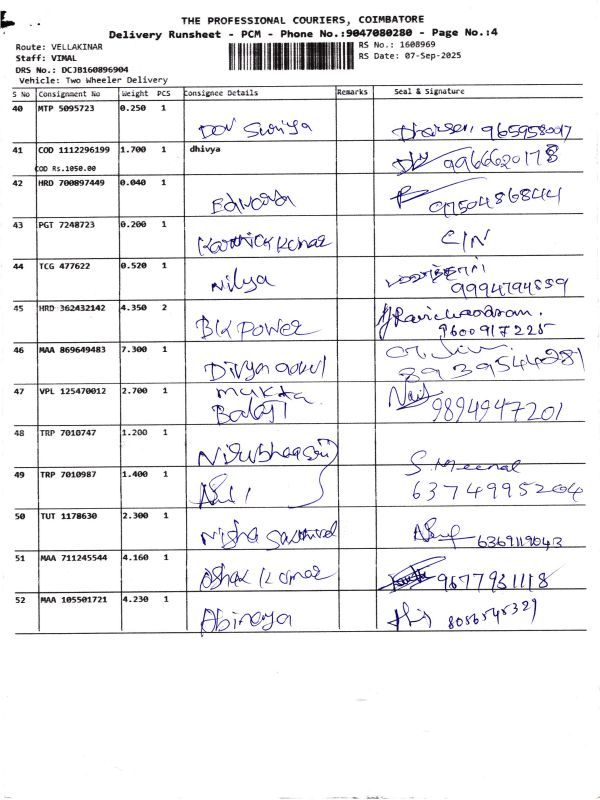 THE PROFESSIONAL COURIERS, COIMBATORE
Delivery Runsheet - PCM - Phone No.:9047080280 - Page No.:4
Route: VELLAKINAR
RS No.: 1608969
Staff: VIMAL
RS Date: 07-Sep-2025
DRS No.: DCJB160896904
Vehicle: Two Wheeler Delivery
S No Consignment No Weight PCS Consignee Details Remarks Seal & Signature
40 MTP 5095723 0.250 1
Dev Suriya
41 COD 1112296199 1.700 1 dhivya 9966620178
COD Rs.1050.00
42 HRD 700897449 0.040 1
Edwara 9750486844
43 PGT 7248723 0.200 1
Karthick kumar C/N
44 TCG 477622 0.520 1
Nilya 9994794859
45 HRD 362432142 4.350 2 Ravichandran.
BK Power 9600917225
46 MAA 869649483 7.300 1
Divya gokul 8939544281
47 VPL 125470012 2.700 1 mukta
Balaji 9894947201
48 TRP 7010747 1.200 1
Nirubhaasri
49 TRP 7010987 1.400 1 S. Meenal
6374995204
50 TUT 1178630 2.300 1
Nisha Sakthivel 6369119043
51 MAA 711245544 4.160 1
Ashok kumar 9677931118
52 MAA 105501721 4.230 1
Abinaya 8056545329